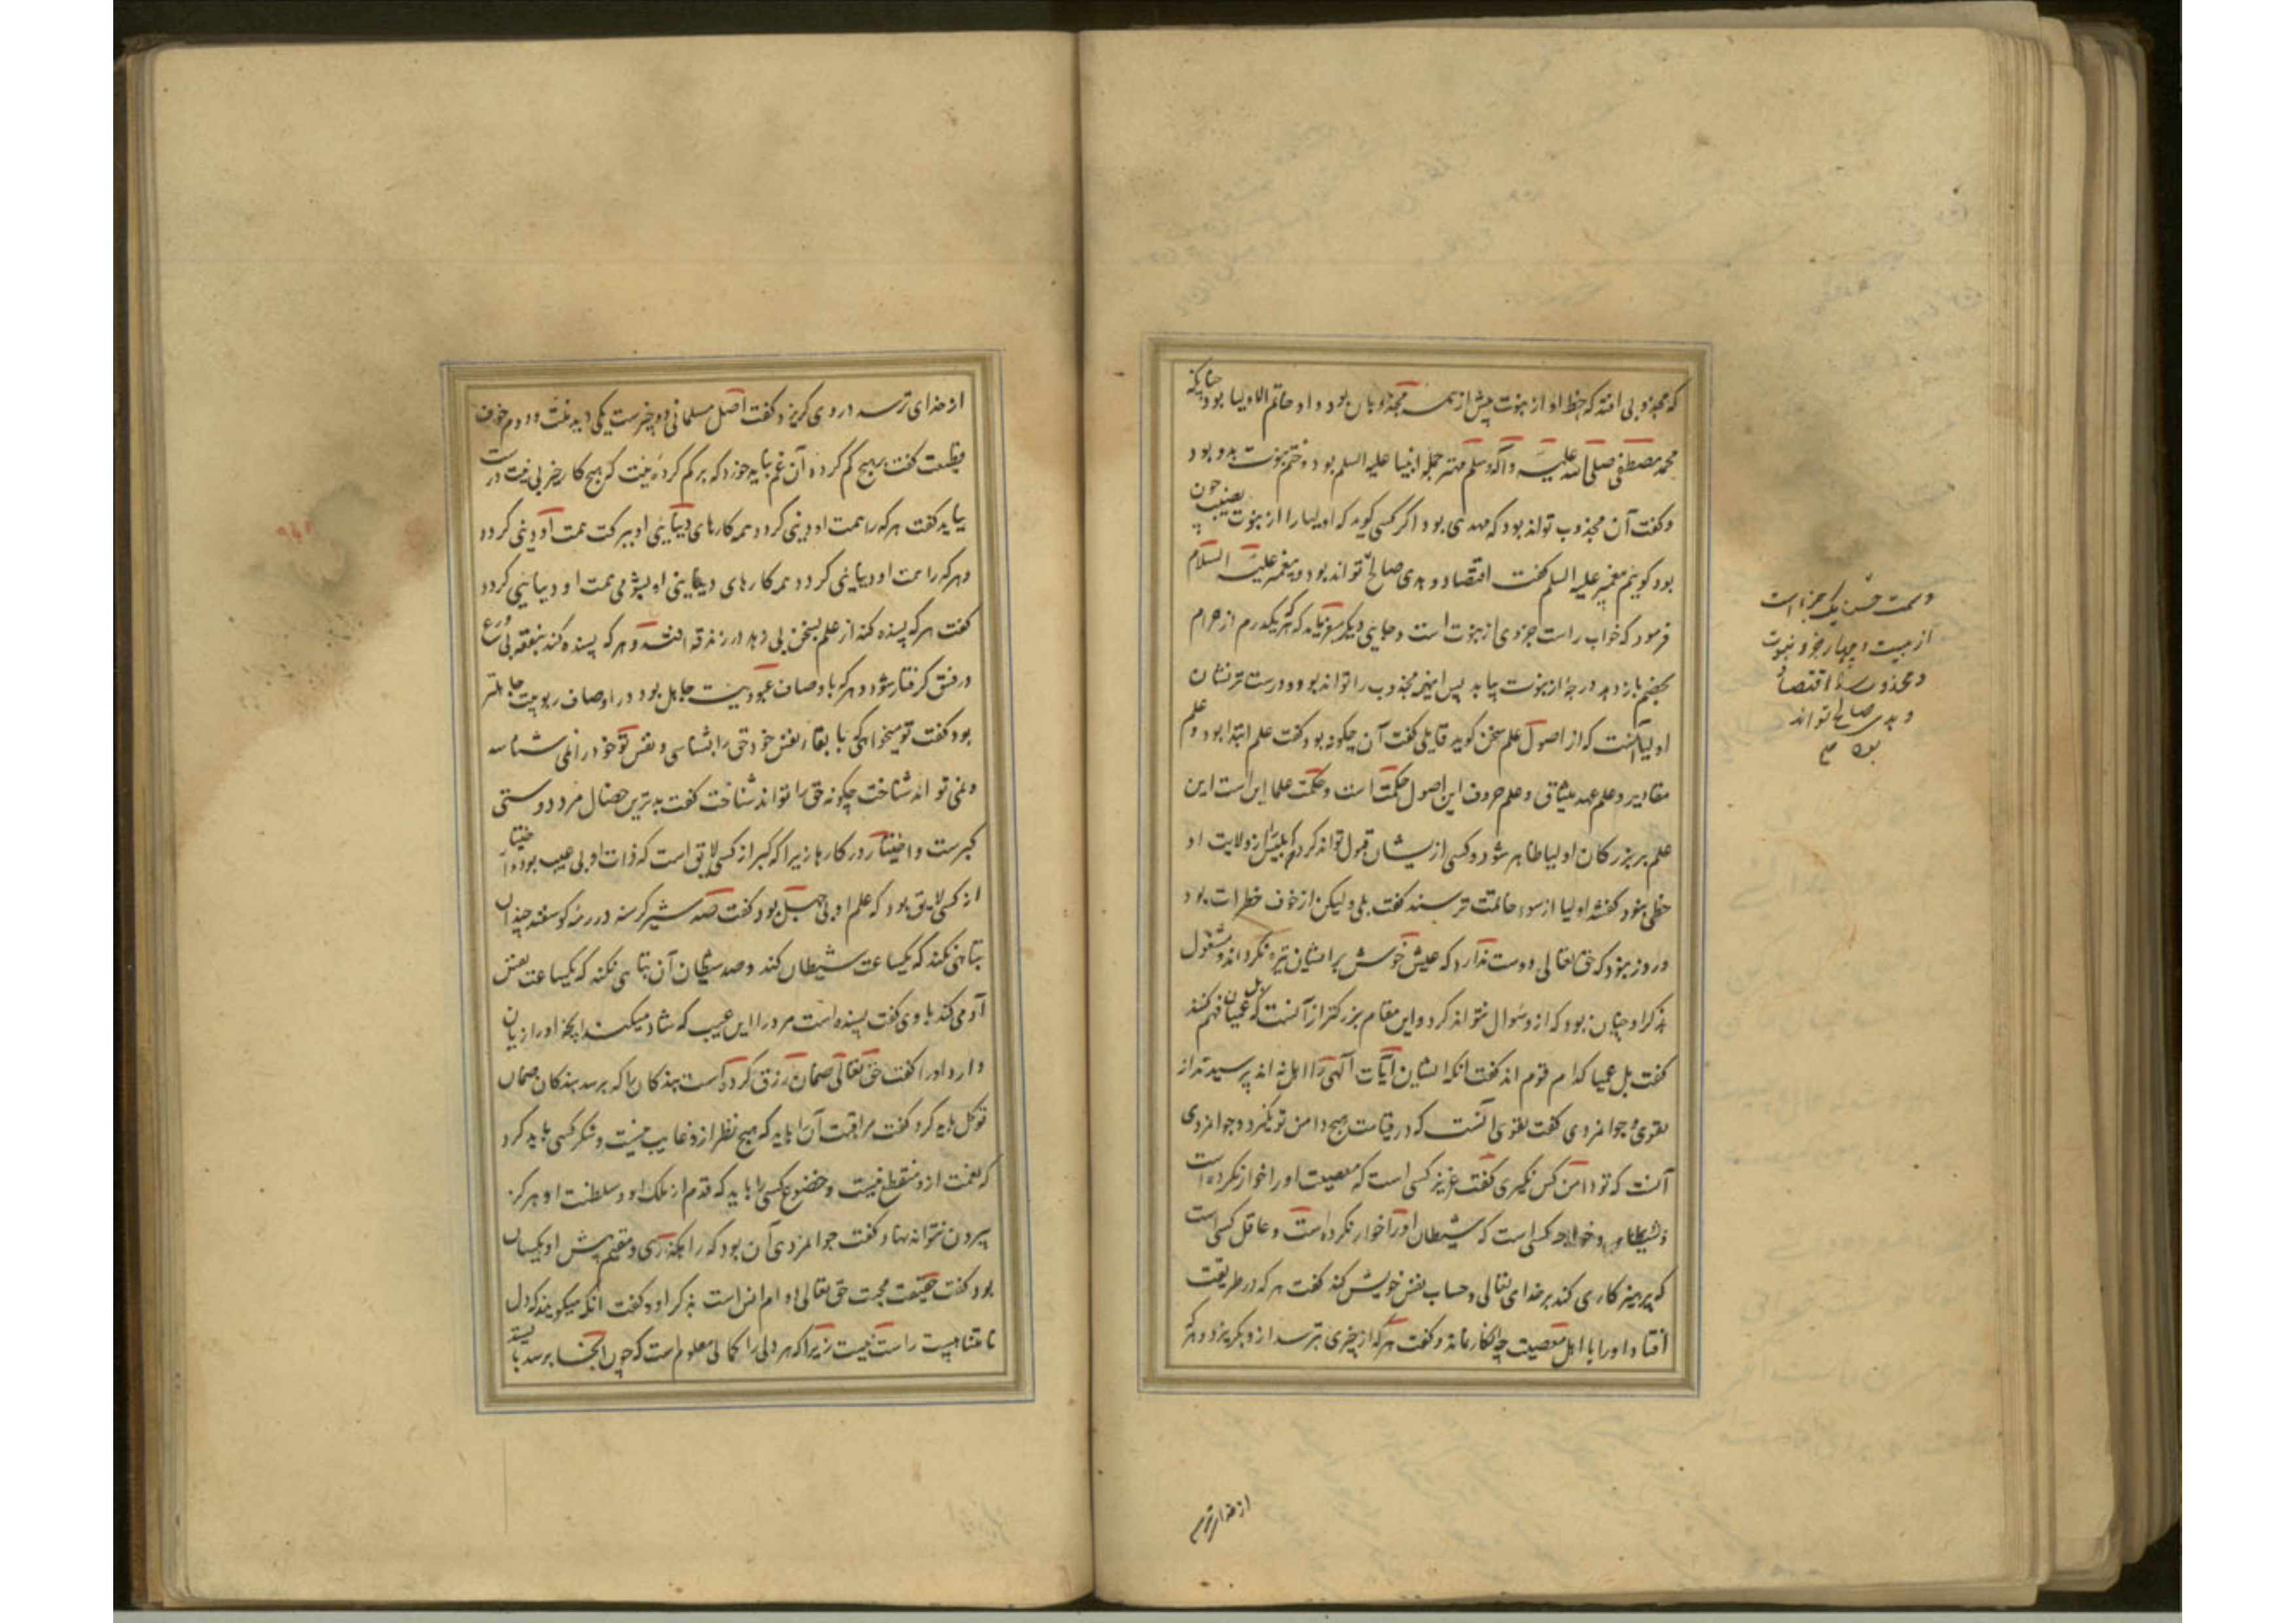 که مجذوبی افتد که حظ او از نبوت بیش از همه مجذوبان بود و او خاتم الاولیا بود چنانکه
محمد مصطفی صلی الله علیه و آله وسلم مهتر جمله انبیا علیه السلم بود و ختم نبوت بدو بود
و کفت آن مجذوب تواند بود که مهدی بود اگر کسی کوید که اولیا را از نبوت نصیب چون
بود کویم پیغمبر علیه السلم کفت اقتصاد و هدی صالح تواند بود و پیغمبر علیه السلام
فرمود که خواب راست جزوی از نبوت است و جایی دیکر میفرماید که هر که یکدرم از حرام
بخصم باز دهد درجهٔ از نبوت بیابد پس اینهمه مجذوب را تواند بود و درست تر نشان
اولیا آنست که از اصول علم سخن کوید قایلی کفت آن چکونه بود کفت علم ابتدا بود و علم
مقادیر و علم عهد میثاق و علم حروف این اصول حکمت است و حکمت علیا این است این
علم بر بزرکان اولیا ظاهر شود و کسی از یشان قبول تواند کرد که بیش از ولایت او
حظی بنود کفتند اولیا از سوء خاتمت ترسند کفت بلی ولیکن از خوف خطرات بود
و روز بنود که حق تعالی دوست ندارد که عیش خوش بر ایشان تیره نکرداند و مشغول
بذکر او چنان بود که از و سوال نتواند کرد و این مقام بزرکتر از آنست که بل عمیان فهم کنند
کفت بل عمیا کدام قوم اند کفت انکه ایشان آیات آلهی را اهل نه اند پرسیدند از
تقوی و جوامردی کفت تقوی آنست که در قیامت هیچ دامن تو نکیرد و جوامردی
آنست که تو دامن کس نکیری کفت عزیز کسی است که معصیت او را خوار نکرده است
و خواجه کسی است که شیطان او را خوار نکرده است و عاقل کسی است
که پرهیز کاری کند برخدای تعالی و حساب نفس خویش کند کفت هر که در طریقت
افتاد او را با اهل معصیت هیچ انکار نماند و کفت هر که از چیزی بترسد از و بکریزد و هر که
و سمت حسن یک جزء است
از بیست و چهار جزو نبوت
و مجذوب را اقتصاد
و هدی صالح تواند
بود صح
از خدای ترسد
از خدای ترسد در وی کریزد کفت اصل مسلمانی دو چیزست یکی دید منت و دوم خوف
قطیعت کفت بر هیچ کم کردهٔ آن غم نباید خورد که بر کم کردهٔ نیت که هیچ کار خیر بی نیت درست
نیاید کفت هر که را همت او دینی کردد همه کارهای دنیایی او ببرکت همت او دینی کردد
و هر که را همت او دنیایی کردد همه کارهای دینی او بشومی همت او دنیایی کردد
کفت هر که بسنده کند از علم بسخن بی زهد در زندقه افتد و هر که بسنده کند بفقه بی ورع
در فسق کرفتار شود و هر که باوصاف عبودیت جاهل بود در اوصاف ربوبیت جاهلتر
بود کفت تو میخواهی که با بقاء نفس خود حق را بشناسی و نفس تو خود را نمی شناسد
و نمی تواند شناخت چکونه حق را تواند شناخت کفت بدترین خصال مرد دوستی
کبرست و اختیار در کارها زیرا که کبر از کسی لایق است که ذات او بی عیب بود و اختیار
از کسی لایق بود که علم او بی جهل بود کفت صد شیر کرسنه در رمهٔ کوسفند چندان
تباهی نکند که یکساعت شیطان کند و صد شیطان آن تباهی نکند که یکساعت نفس
آدمی کند با وی کفت بسنده است مرد را این عیب که شاد میکند او را آنچه او را زیان
دارد او را کفت حق تعالی ضمان رزق کرده است بندکان را که برسد بندکان ضمان
توکل باید کرد کفت مراقبت آنرا باید که هیچ نظر ازو غایب نیست و شکر کسی باید کرد
که نعمت ازو منقطع نیست و خضوع کسی را باید که قدم از ملک او و سلطنت او هرکز
بیرون نتواند نهاد و کفت جوامردی آن بود که راه کذری و مقیم پیش او یکسان
بود کفت حقیقت محبت حق تعالی دوام انس است بذکر او و کفت انکه میکویند که دل
نامتناهیست راست نیست زیرا که هر دلی را کمالی معلوم است که چون آنجا برسد بایستد